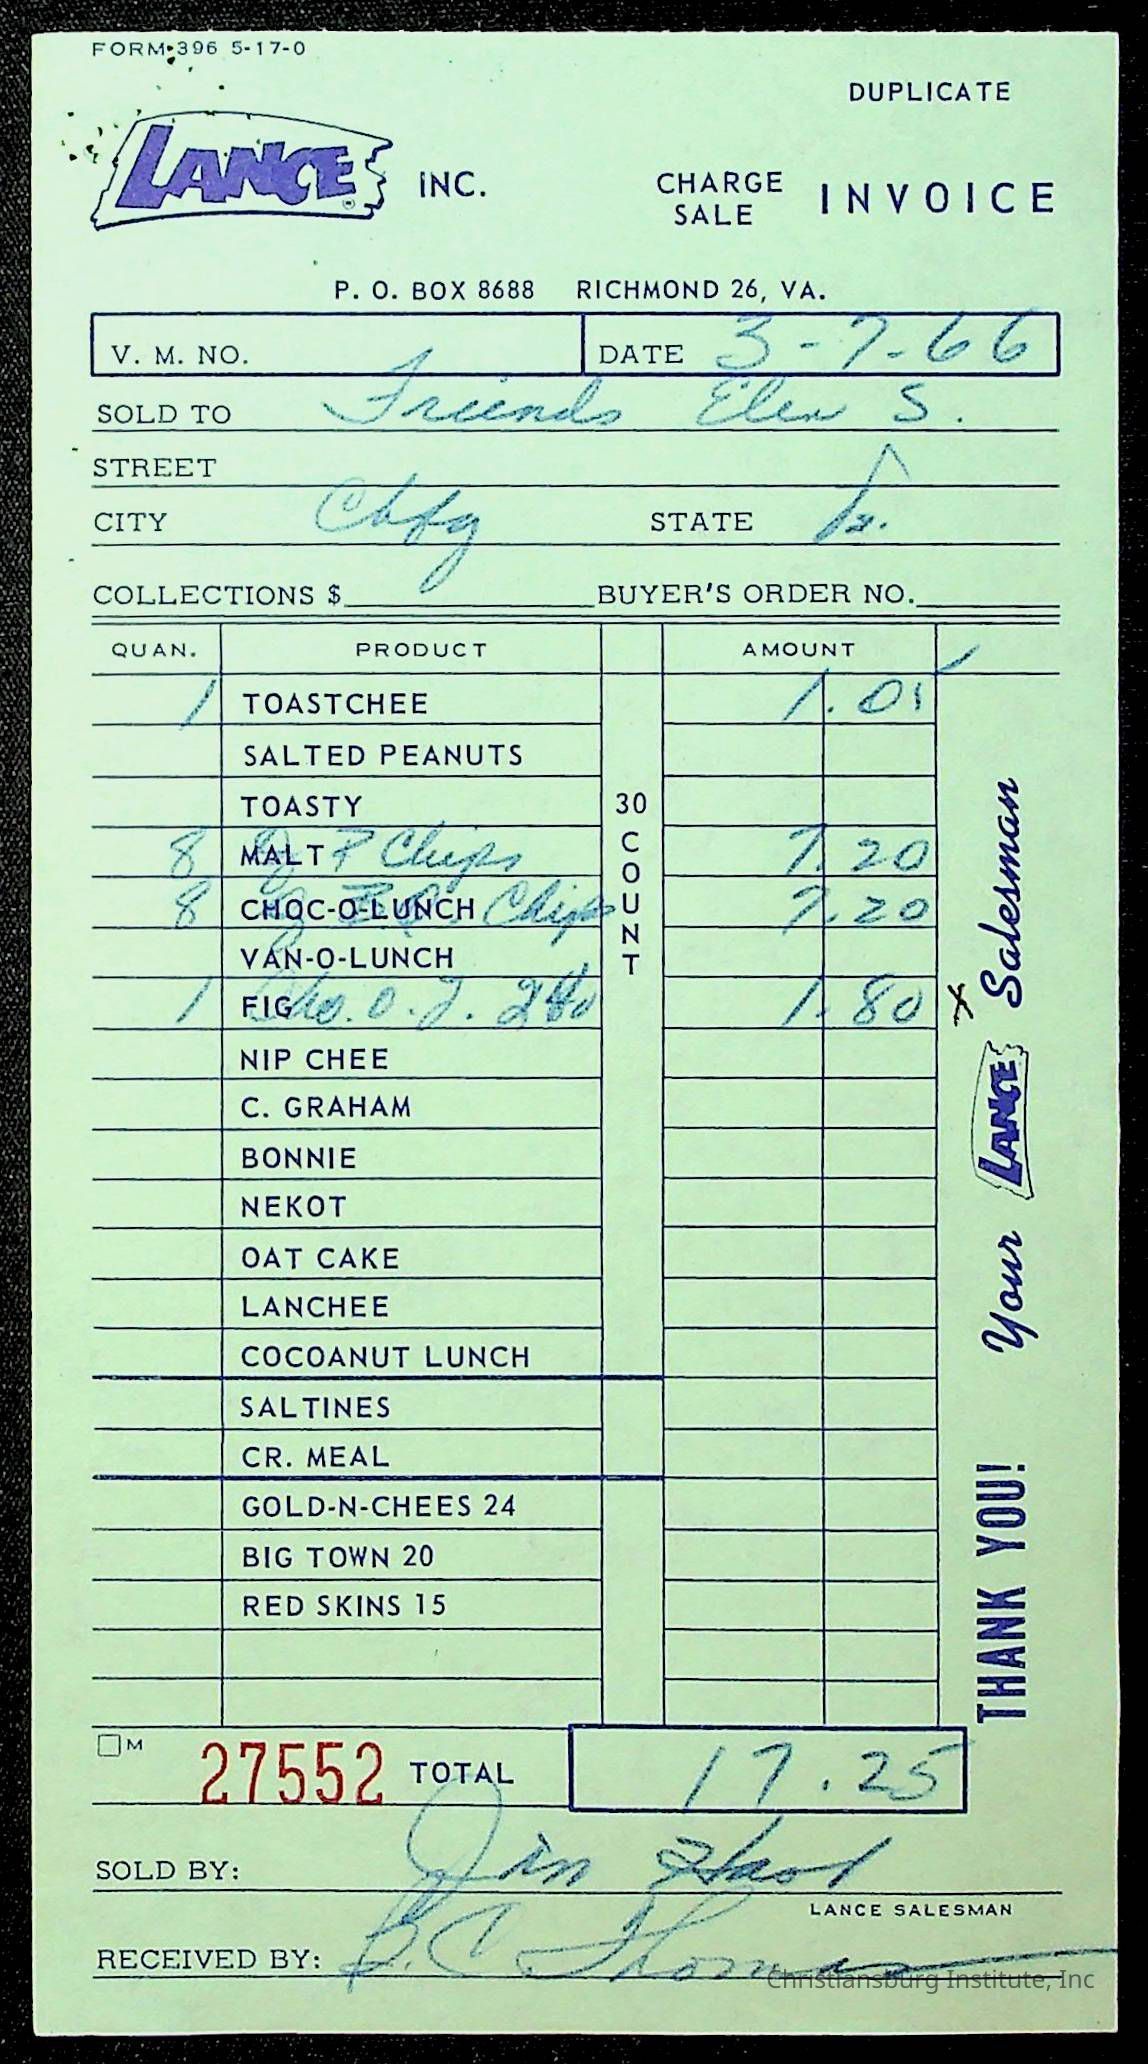 FORM 396 5-17-0
DUPLICATE
LANCE® INC.
CHARGE SALE INVOICE
P. O. BOX 8688 RICHMOND 26, VA.
V. M. NO. DATE 3-7-66
SOLD TO Friends Elem S.
STREET
CITY Chbg STATE Va.
COLLECTIONS $ BUYER'S ORDER NO.
QUAN. PRODUCT AMOUNT
1 TOASTCHEE 1.05
SALTED PEANUTS
TOASTY
8 MALT Chips 7.20
8 CHOC-O-LUNCH Chips 7.20
VAN-O-LUNCH
1 FIG Cho. o. 1.80
NIP CHEE
C. GRAHAM
BONNIE
NEKOT
OAT CAKE
LANCHEE
COCOANUT LUNCH
30 COUNT
SALTINES
CR. MEAL
GOLD-N-CHEES 24
BIG TOWN 20
RED SKINS 15
THANK YOU! Your LANCE Salesman
M 27552 TOTAL 17.25
SOLD BY: Jim
LANCE SALESMAN
RECEIVED BY: B.C Thomas
Christiansburg Institute, Inc